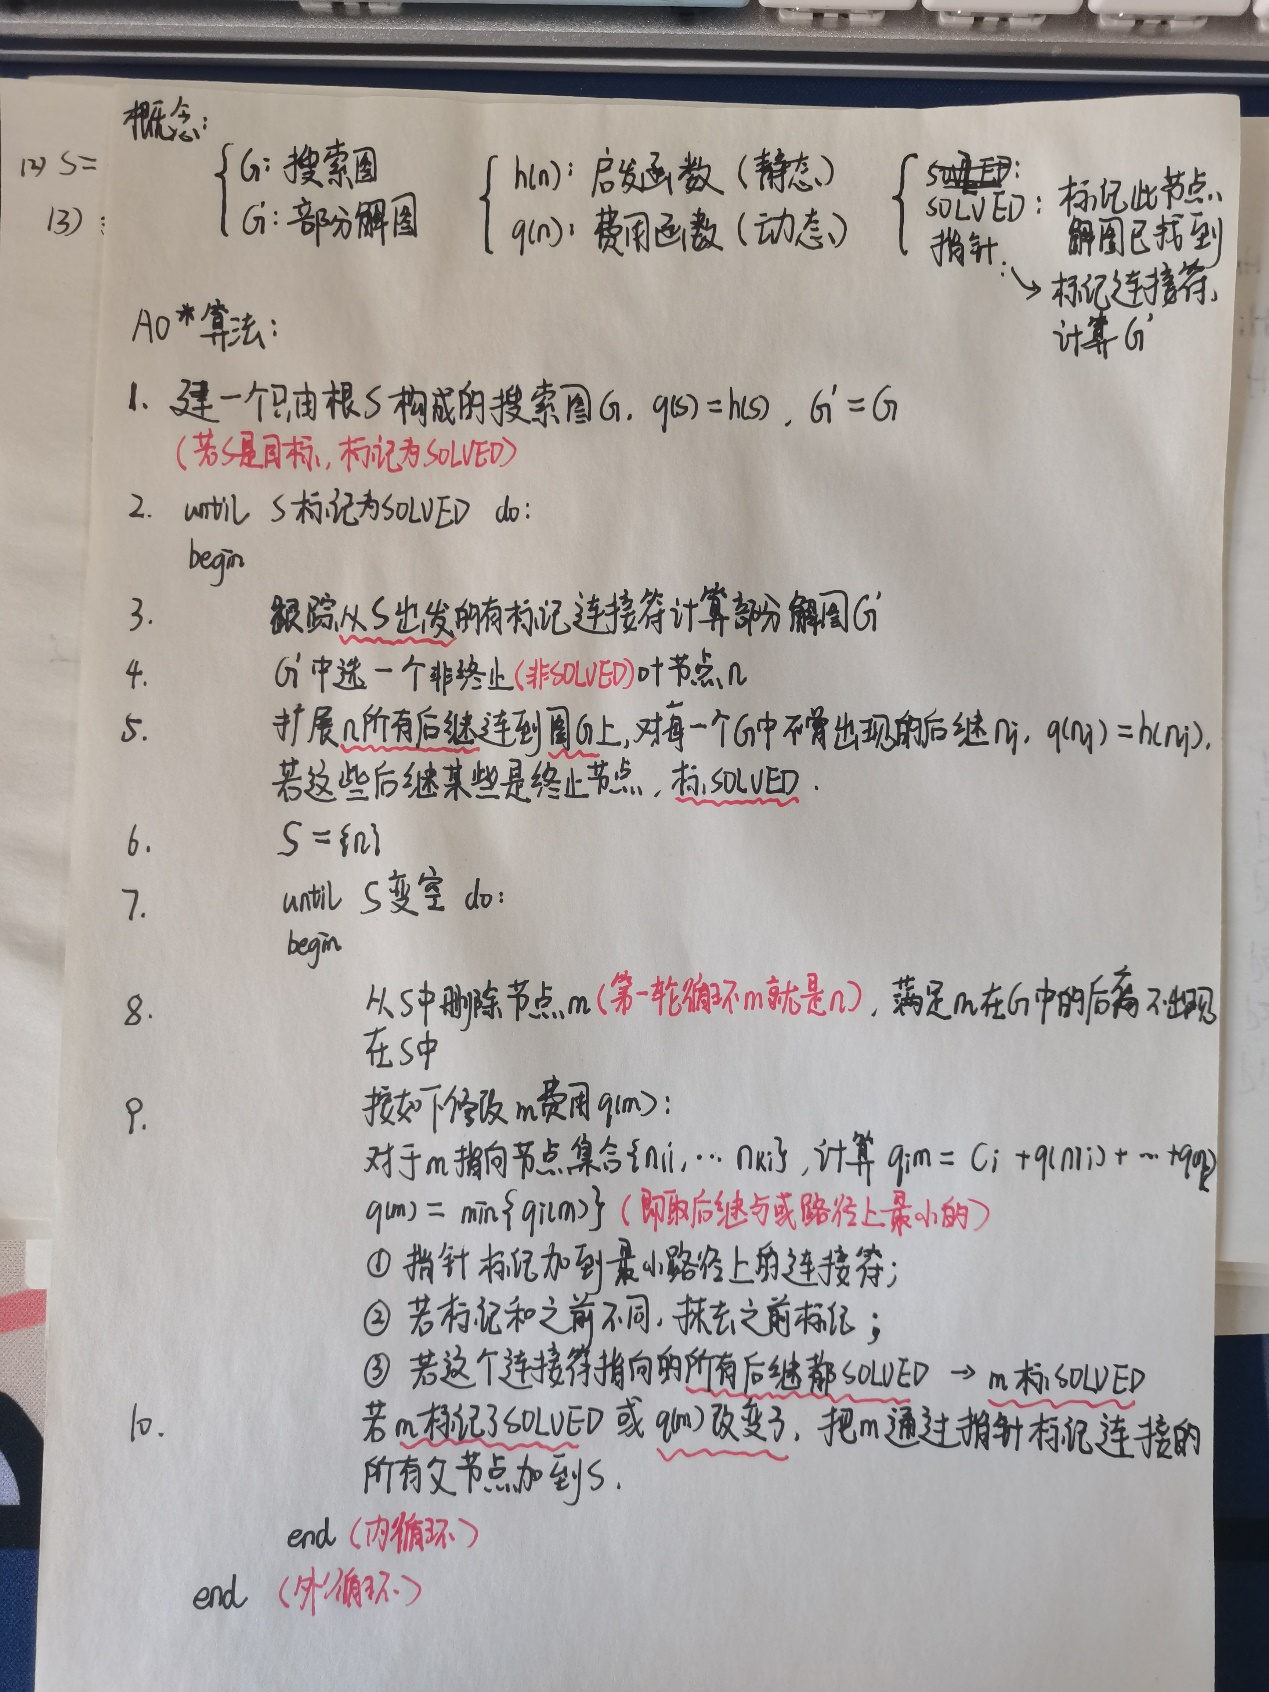 概念:
(2) S=
(3)
G: 搜索图
G': 部分解图
h(n): 启发函数 (静态)
q(n): 费用函数 (动态)
SOLVED: 标记此节点
解图已找到
指针:
→ 标记连接符,
计算G'
AO*算法:
1. 建一个只由根S构成的搜索图G, q(s)=h(s), G'=G
(若S是目标, 标记为SOLVED)
2. until S标记为SOLVED do:
begin
3. 跟踪从S出发的有标记连接符计算部分解图G'
4. G'中选一个非终止(非SOLVED)叶节点n
5. 扩展n所有后继连到图G上, 对每一个G中不曾出现的后继nj, q(nj)=h(nj),
若这些后继某些是终止节点, 标SOLVED.
6. S={n}
7. until S变空 do:
begin
8. 从S中删除节点m(第一轮循环m就是n), 满足m在G中的后裔不出现
在S中
9. 按如下修改m费用q(m):
对于m指向节点集合{n1i, … nki}, 计算 qim = Ci + q(n1i) + … + q(nki)
q(m) = min{qi(m)} (即取后继与或路径上最小的)
① 指针标记加到最小路径上的连接符;
② 若标记和之前不同, 抹去之前标记;
③ 若这个连接符指向的所有后继都SOLVED → m标SOLVED
10. 若m标记了SOLVED或q(m)改变了, 把m通过指针标记连接的
所有父节点加到S.
end (内循环)
end (外循环)